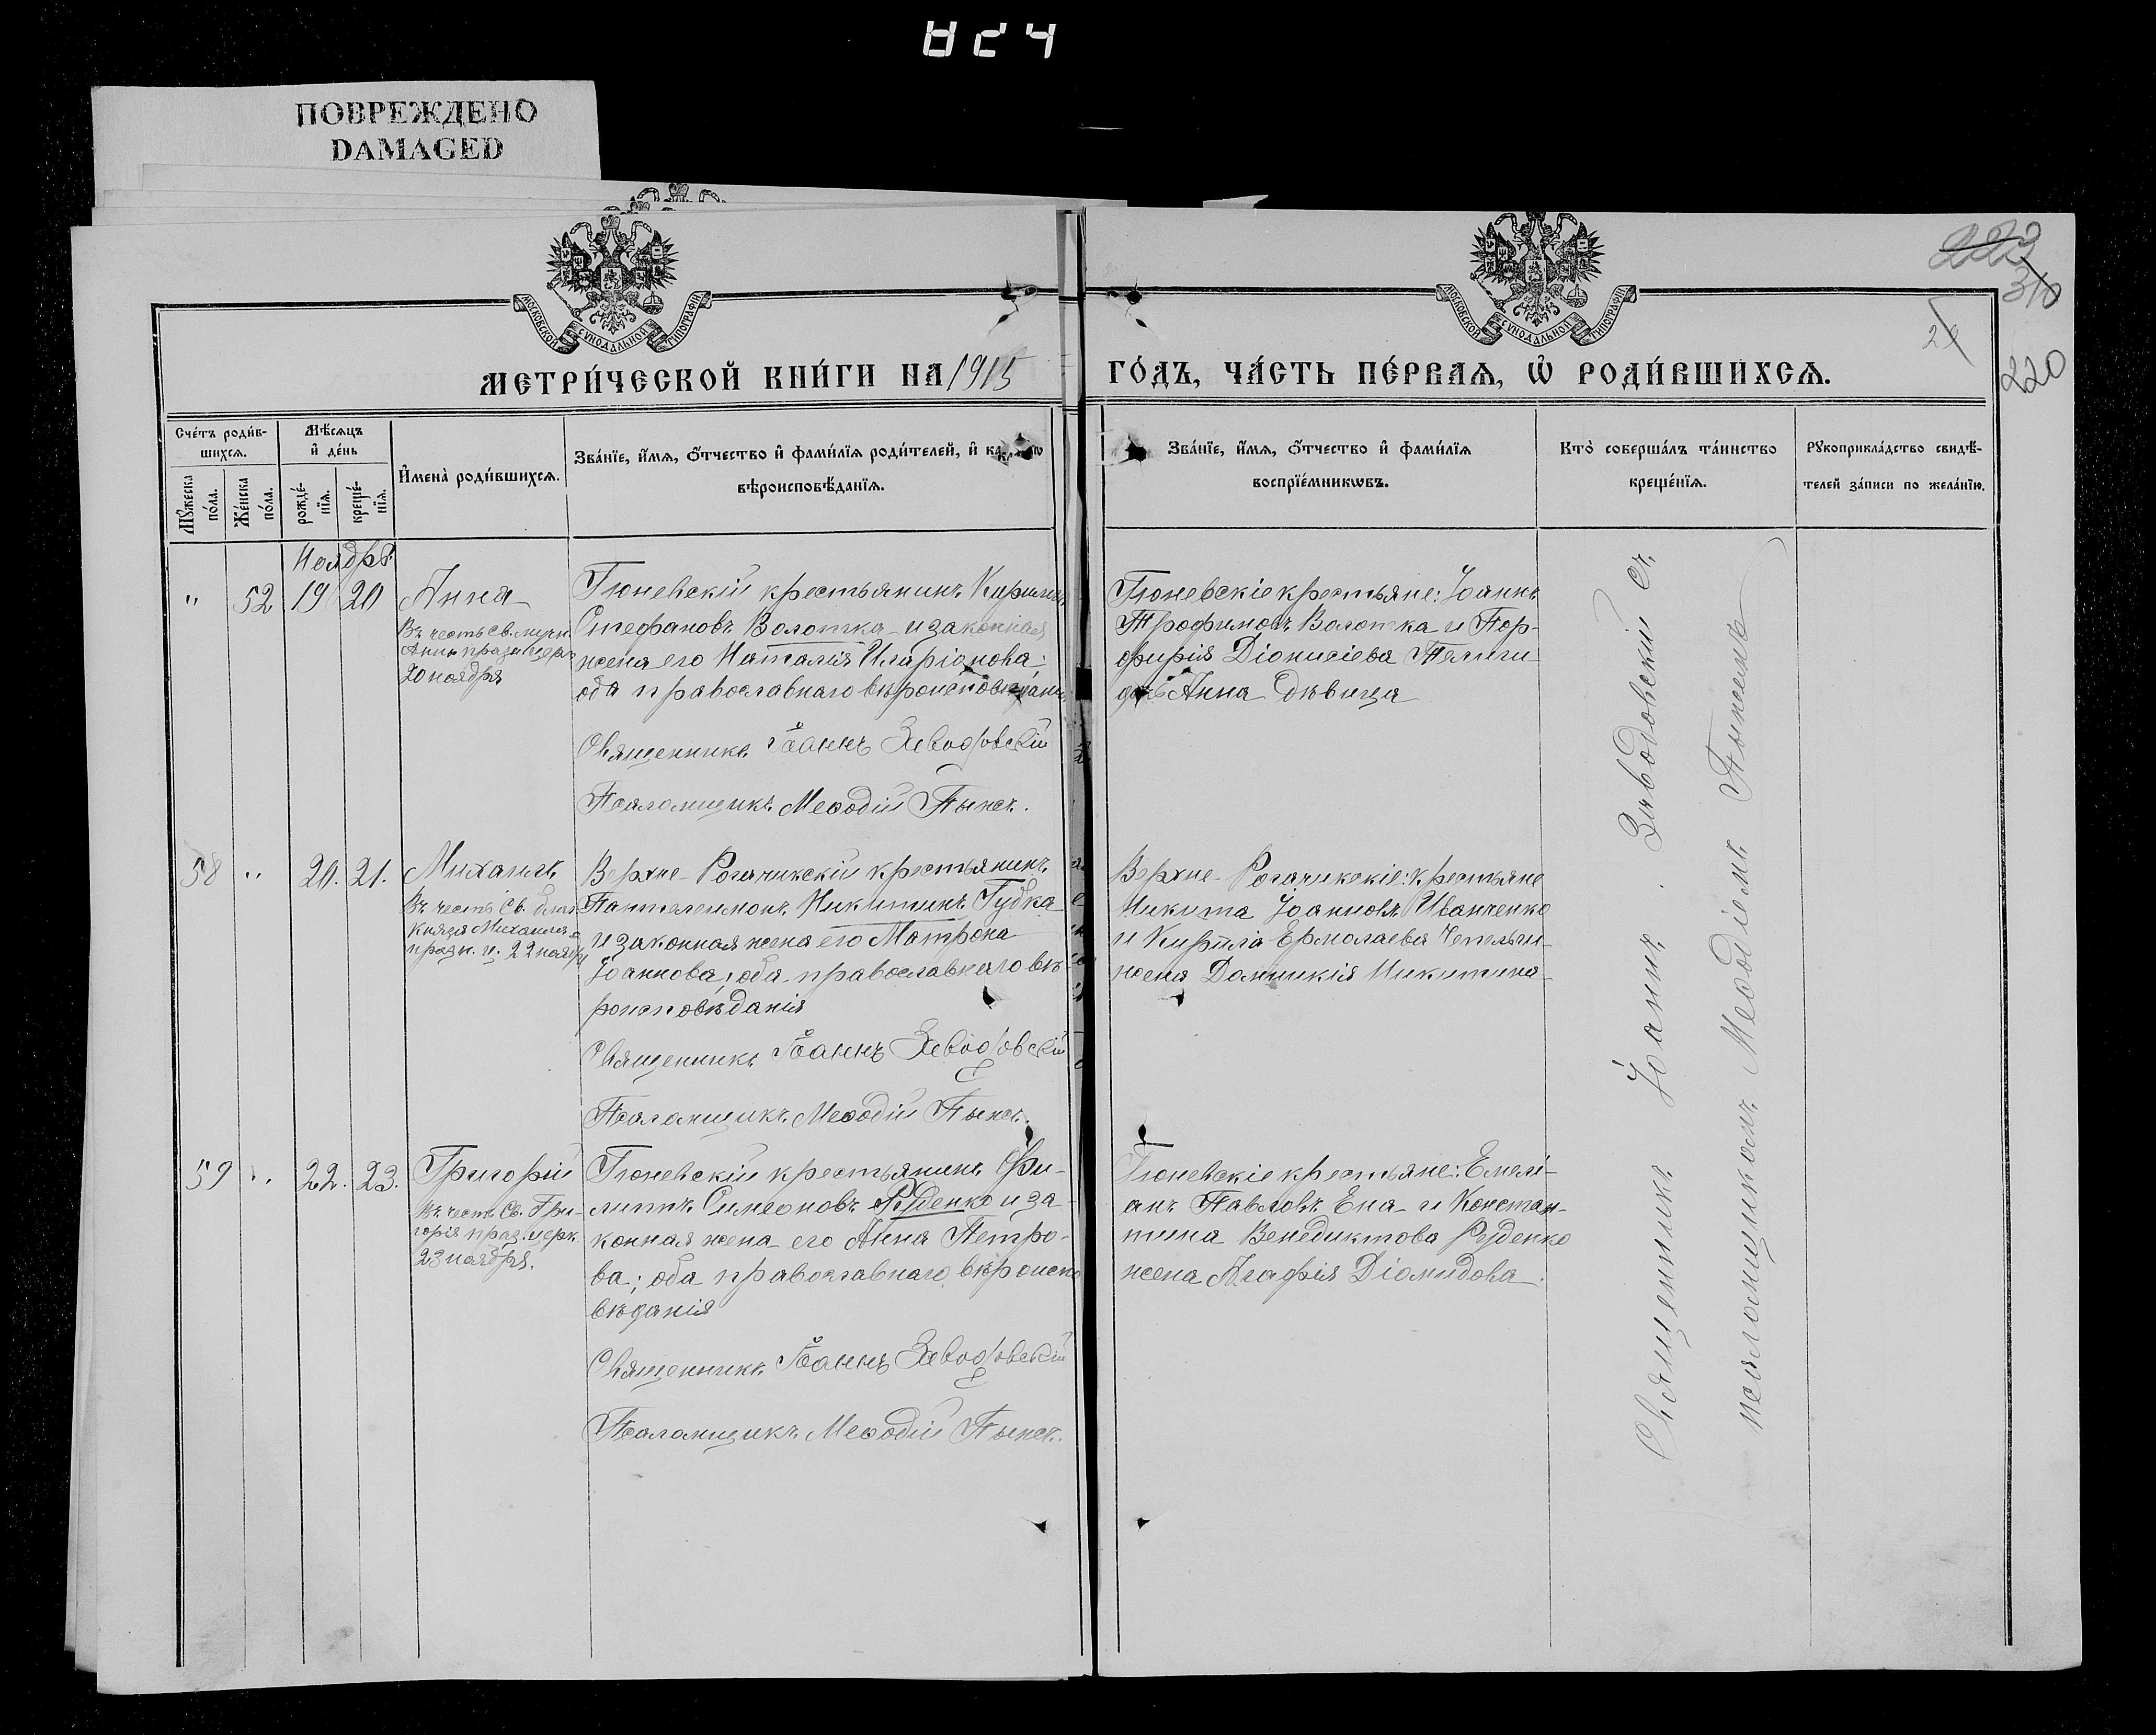 ПОВРЕЖДЕНО
DAMAGED
МОСКОВСКОЙ СѴНОДАЛЬНОЙ ТИПОГРАФІИ
МОСКОВСКОЙ СѴНОДАЛЬНОЙ ТИПОГРАФІИ
223
220
МЕТРИ́ЧЕСКОЙ КНИ́ГИ НА 1915 ГО́ДЪ, ЧА́СТЬ ПЕ́РВАѦ, Ѡ РОДИ́ВШИХСѦ.
Сче́тъ роди́в-
шихсѧ.
Мꙋ́жеска по́ла.
Же́нска по́ла.
Мѣ́сѧцъ
и҆ де́нь
рожде́-
нїѧ.
креще́-
нїѧ.
И҆мена̀ роди́вшихсѧ.
Зва́нїе, и҆́мѧ, ѻ҆́тчество и҆ фами́лїѧ роди́телей, и҆
вѣроисповѣ́данїѧ.
Зва́нїе, и҆́мѧ, ѻ҆́тчество и҆ фами́лїѧ
воспрїе́мникѡвъ.
Кто̀ соверша́лъ та́инство
креще́нїѧ.
Рꙋкоприкла́дство свидѣ́-
телей за́писи по жела́нїю.
Ноября
" 52 19 20 Анна
Въ честь св. мучн.
Анны празн церк
20 ноября
Гюневскій крестьянинъ Кириллъ
Стефановъ Волотка и законная
жена его Наталія Иларіонова:
оба православнаго вѣроисповѣдані
Священникъ Іоаннъ Заводовскій
Псаломщикъ Меѳодій Пынсъ.
Гюневскіе крестьяне: Іоаннъ
Трофимовъ Волотка и Пор-
фирія Діонисіева
дочь Анна дѣвица
58 " 20. 21. Михаилъ
Въ честь Св. благ.
Князя Михаила
празн. ц. 22 ноября
Верхне-Рогачикскій крестьянинъ
Пантелеимонъ Никитинъ Губка
и законная жена его Матрона
Іоаннова; оба православнаго вѣ
роисповѣданія
Священникъ Іоаннъ Заводовскій
Псаломщикъ Меѳодій Пынсъ.
Верхне-Рогачикскіе: крестьяне
Никита Іоанновъ Иванченко
и Кирилла Ермолаева
жена Домникія Никитина
59 " 22. 23. Григорій
Въ честь Св. Гри-
горія праз. церк.
23 ноября.
Гюневскій крестьянинъ Фи-
липпъ Симеоновъ Руденко и за-
конная жена его Анна Петро-
ва; оба православнаго вѣроиспо
вѣданія
Священникъ Іоаннъ Заводовскій
Псаломщикъ Меѳодій Пынсъ.
Гюневскіе крестьяне: Емелі-
анъ Павловъ Ена и Констан-
тина Венедиктова Руденко
жена Агафія Діомидова.
Священникъ Іоаннъ Заводовскій съ
псаломщикомъ Меѳодіемъ Пынсемъ